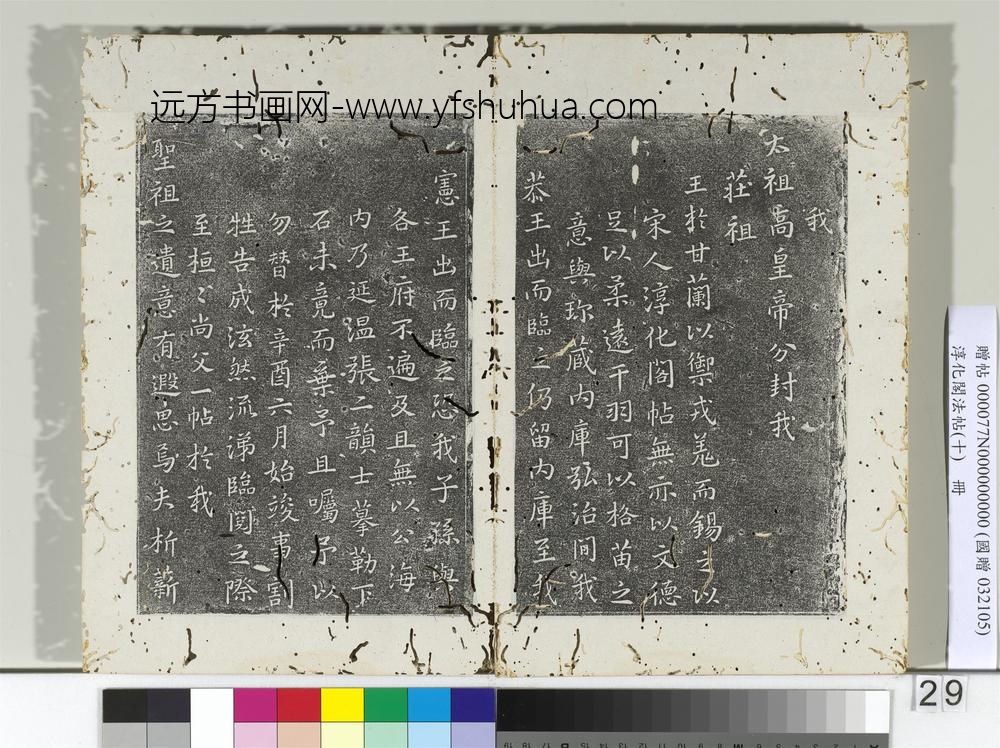 远方书画网-www.yfshuhua.com
我
太祖高皇帝分封我
莊祖
王於甘蘭以禦戎羌而錫之以
宋人淳化閣帖無亦以文德
足以柔遠干羽可以格苗之
意與珎蔵内庫弘治間我
恭王出而臨之仍留内庫至我
憲王出而臨之恐我子孫與
各王府不遍及且無以公海
内乃延温張二韻士摹勒下
石未竟而棄予且囑予以
勿替於辛酉六月始竣事割
牲告成泫然流涕臨閲之際
至桓〻尚父一帖於我
聖祖之遺意有遐思焉夫析薪
贈帖 000077N000000000 (國贈 032105)
淳化閣法帖(十) 冊
29